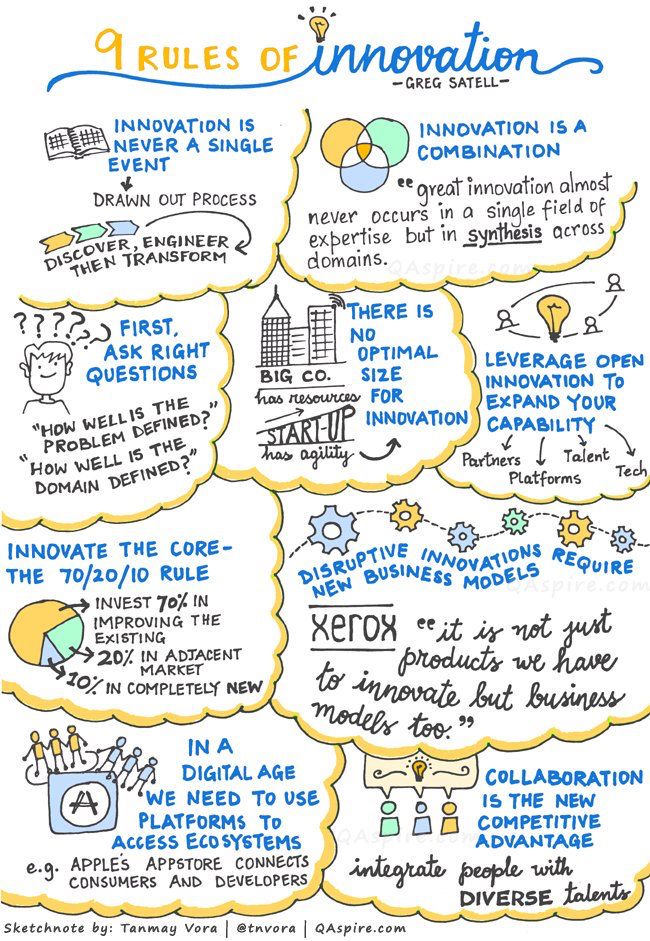 9 RULES OF innovation
-GREG SATELL-
INNOVATION IS
NEVER A SINGLE
EVENT
DRAWN OUT PROCESS
DISCOVER, ENGINEER
THEN TRANSFORM
INNOVATION IS A
COMBINATION
"great innovation almost
never occurs in a single field of
expertise but in synthesis across
domains.
QAspire.com
????
??
FIRST,
ASK RIGHT
QUESTIONS
"HOW WELL IS THE
PROBLEM DEFINED?"
"HOW WELL IS THE
DOMAIN DEFINED?"
THERE IS
NO
OPTIMAL
SIZE
FOR
INNOVATION
BIG CO.
has resources
START-UP
has agility
LEVERAGE OPEN
INNOVATION TO
EXPAND YOUR
CAPABILITY
Partners
Platforms
Talent
Tech
INNOVATE THE CORE-
THE 70/20/10 RULE
INVEST 70% IN
IMPROVING THE
EXISTING
20% IN ADJACENT
MARKET
10% IN COMPLETELY NEW
DISRUPTIVE INNOVATIONS REQUIRE
NEW BUSINESS MODELS
QAspire.com
xerox
"it is not just
products we have
to innovate but business
models too."
IN A
DIGITAL AGE
WE NEED TO USE
PLATFORMS TO
ACCESS ECOSYSTEMS
e.g. APPLE'S APPSTORE CONNECTS
CONSUMERS AND DEVELOPERS
COLLABORATION
IS THE NEW
COMPETITIVE
ADVANTAGE
QAspire.com
integrate people with
DIVERSE talents
Sketchnote by: Tanmay Vora | @tnvora | QAspire.com